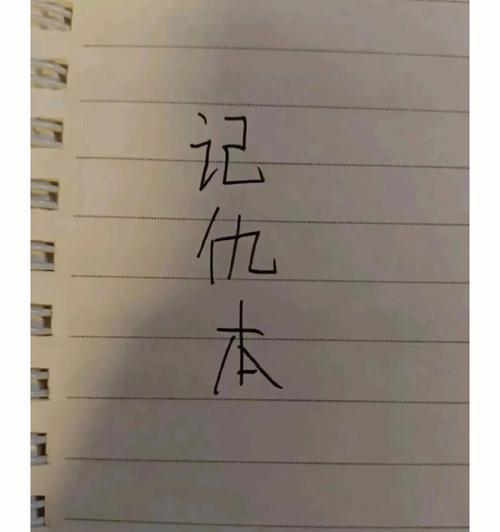 记仇本